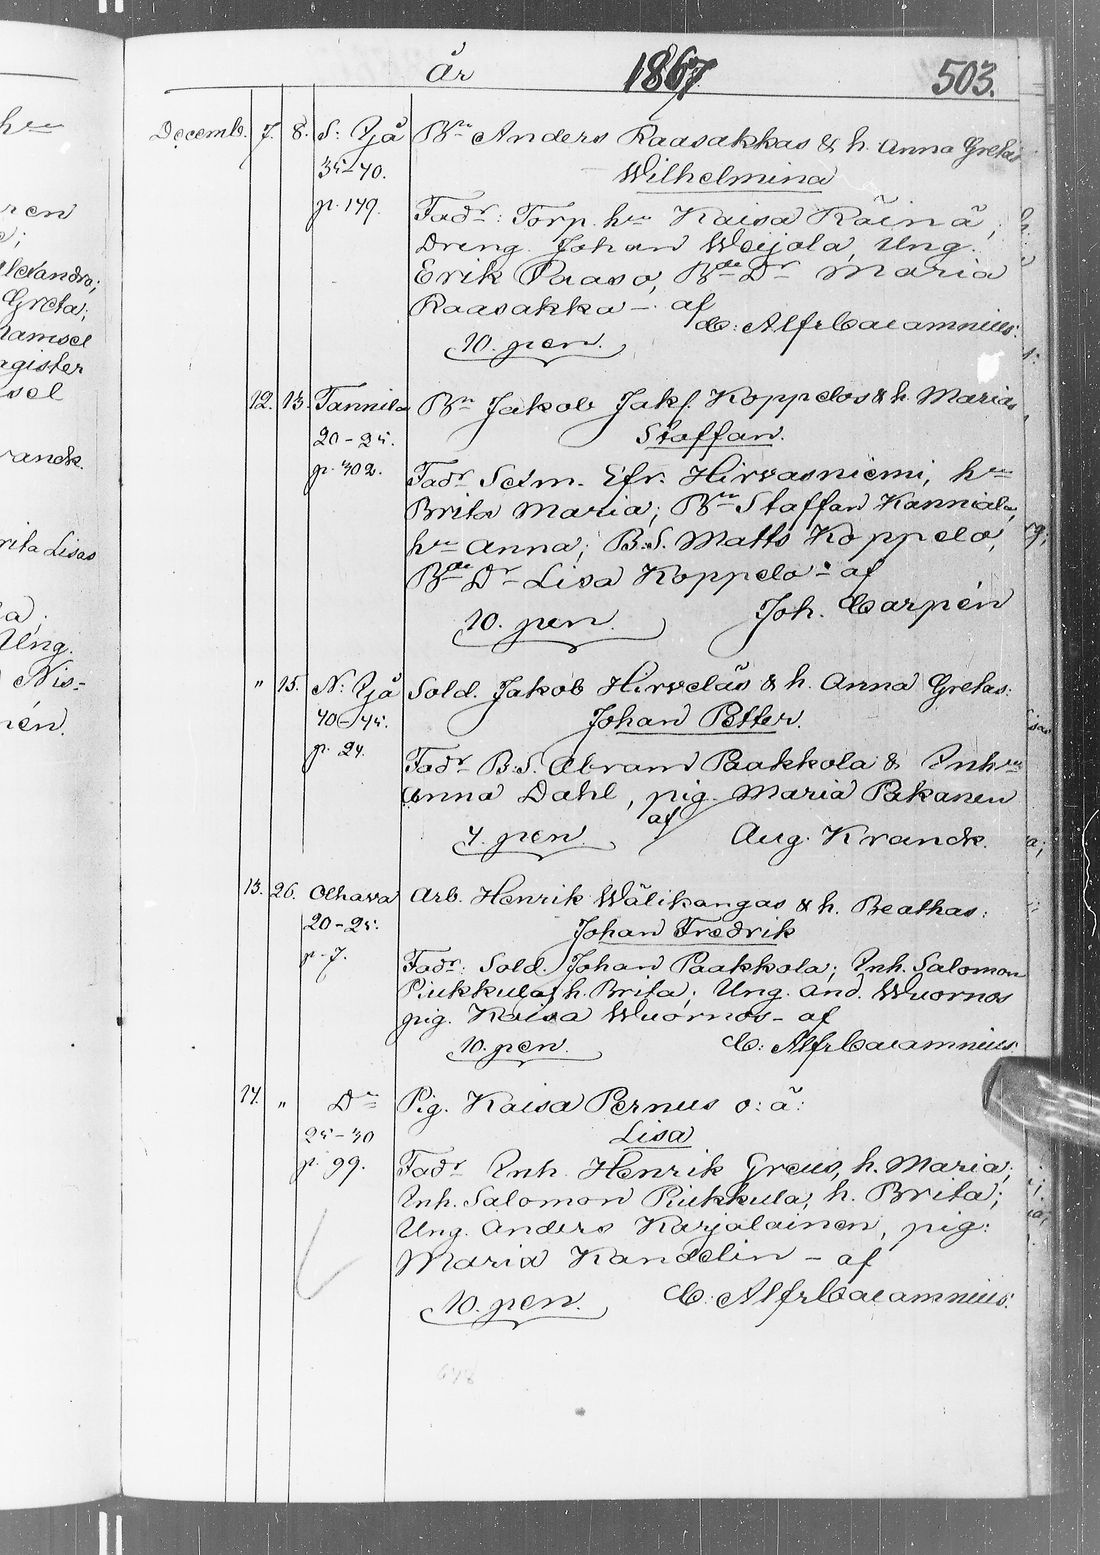 År 1867 503.
Decemb. 7. 8. S: Ijå Bn Anders Raasakkas & h. Anna Gretas
35-40. Wilhelmina
p. 179. Fadr: Torp. hu Kaisa Räinä,
Dreng Johan Weijola, Ung.
Erik Paaso, Bde Dr Maria
Raasakka - af
C: Alfr Calamnius.
10. pen.
12. 13. Tannila Bn Jakob Jakf. Koppelos & h. Marias
20-25. Staffan.
p. 302. Fadr Sctm. Efr. Hirvasniemi, hu
Brita Maria; Bn Staffan Kanniala,
hu Anna; B.S. Matts Koppelo,
Bde Dr Lisa Koppelo - af
10. pen. Joh. Carpén
" 15. N: Ijå Sold. Jakob Hirveläs & h. Anna Gretas:
40-45. Johan Petter.
p. 24. Fadr B.S. Abram Paakkola & Inhu
Anna Dahl, pig. Maria Pakanen
af
4. pen. Aug. Kranck.
13. 26. Olhava Arb. Henrik Wälikangas & h. Beathas:
20-25. Johan Fredrik
p. 7. Fadr: Sold. Johan Paakkola; Inh. Salomon
Piukkula, h. Brita; Ung. And. Wuornos
pig. Kaisa Wuornos - af
10. pen. C: Alfr Calamnius.
14. " Do Pig. Kaisa Pernus o: ä:
25-30 Lisa
p. 99. Fadr Inh. Henrik Greus, h. Maria;
Inh. Salomon Piukkula, h. Brita;
Ung. Anders Karjalainen, pig:
Maria Kandelin - af
10. pen. C: Alfr Calamnius.